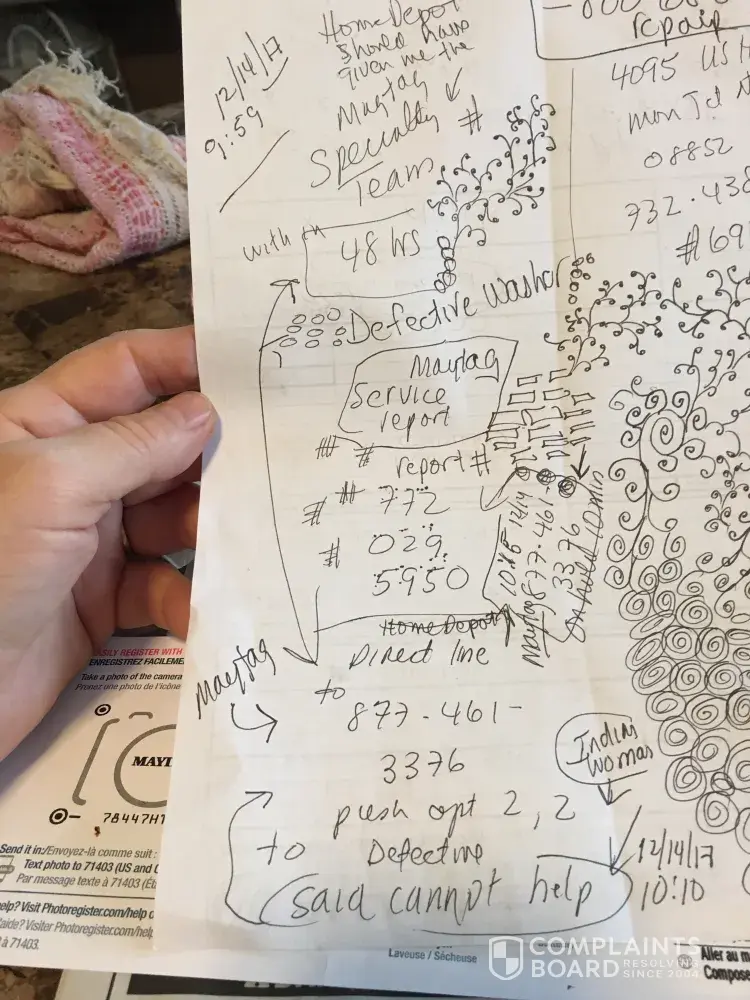 12/14/17
9:59
Home Depot
should have
given me the
Maytag
Specialty #
Team
with in
48 hrs
Defective Washer
Maytag
Service
report
report #
# 772
# 029
5950
Home Depot
Direct line
to
Maytag
877-461-
3376
push opt 2, 2
to Defective
said cannot help
12/14
Maytag 877-461-
3376
on hold 10 min
Indian
Woman
12/14/17
10:10
repair
4095 US H
mon Jct N
08852
732.438
#69
EASILY REGISTER WITH
ENREGISTREZ FACILEME
Take a photo of the camera
Prenez une photo de l'icône
MAYT
78447HT
Send it in:/Envoyez-là comme suit :
Text photo to 71403 (US and C
Par message texte à 71403 (Ét
elp? Visit Photoregister.com/help o
'aide? Visiter Photoregister.com/help
à 71403.
Laveuse / Sécheuse
Aller au m
Compose
COMPLAINTS
BOARD RESOLVING
SINCE 2004